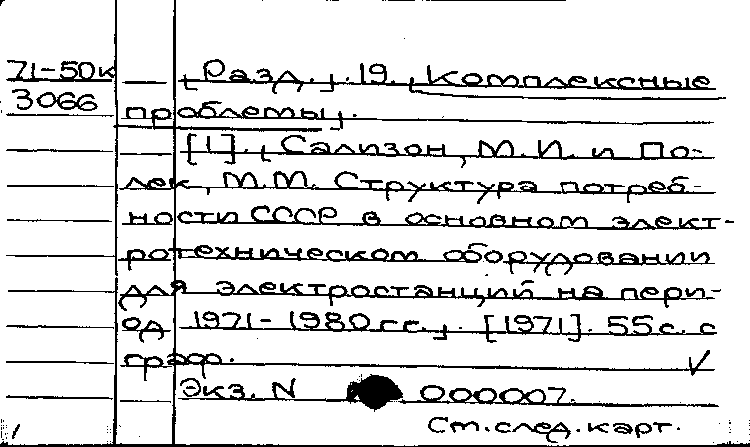 71-50к
3066
[Разд.]. 19. [Комплексные
проблемы].
[1]. [Сализон, М.И. и По-
лек, М.М. Структура потреб-
ности СССР в основном элект-
ротехническом оборудовании
для электростанций на пери-
од 1971-1980 гг.]. [1971]. 55 с. с
граф.
Экз. N 000007.
См. след. карт.